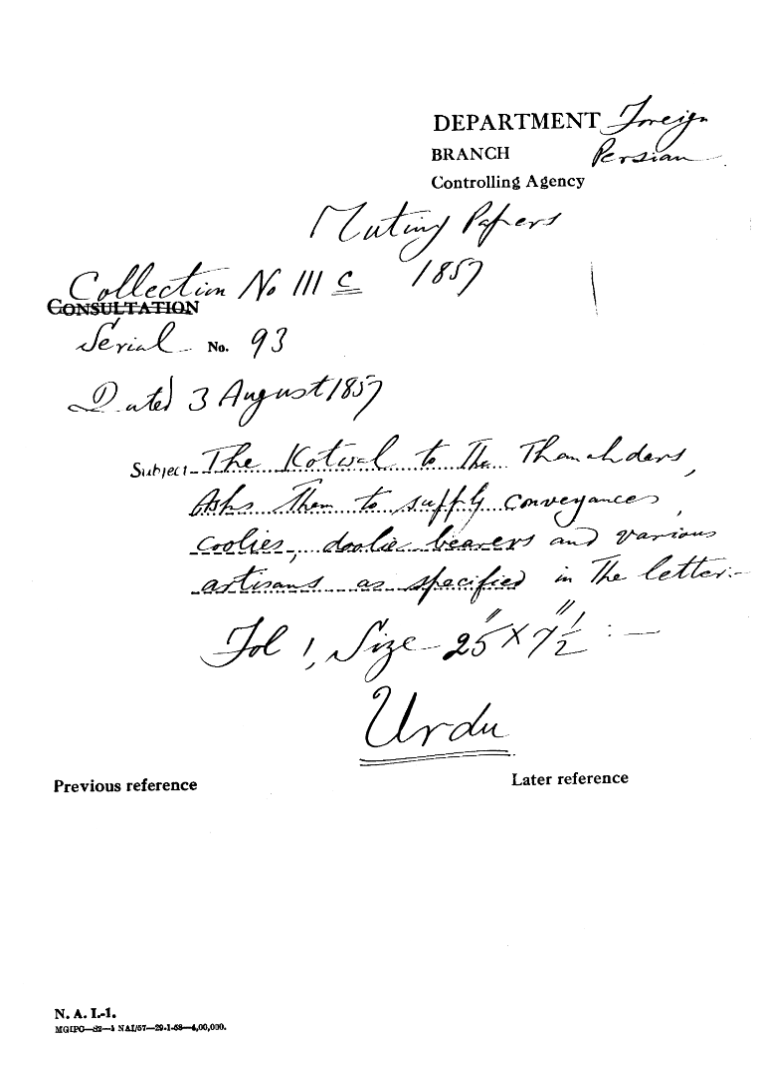 DEPARTMENT Foreign
BRANCH Persian
Controlling Agency
Mutiny Papers
Collection No III C 1857
CONSULTATION
Serial No. 93
Dated 3 August 1857
Subject The Kotwal to the Thanahders,
Asks them to supply conveyances,
coolies, doolie bearers and various
artisans as specified in the letter:-
Fol 1, Size 25" x 7"½ :—
Urdu
Previous reference Later reference
N. A. I.-1.
MGIPC—S2—4 NAI/57—29-1-58—4,00,000.